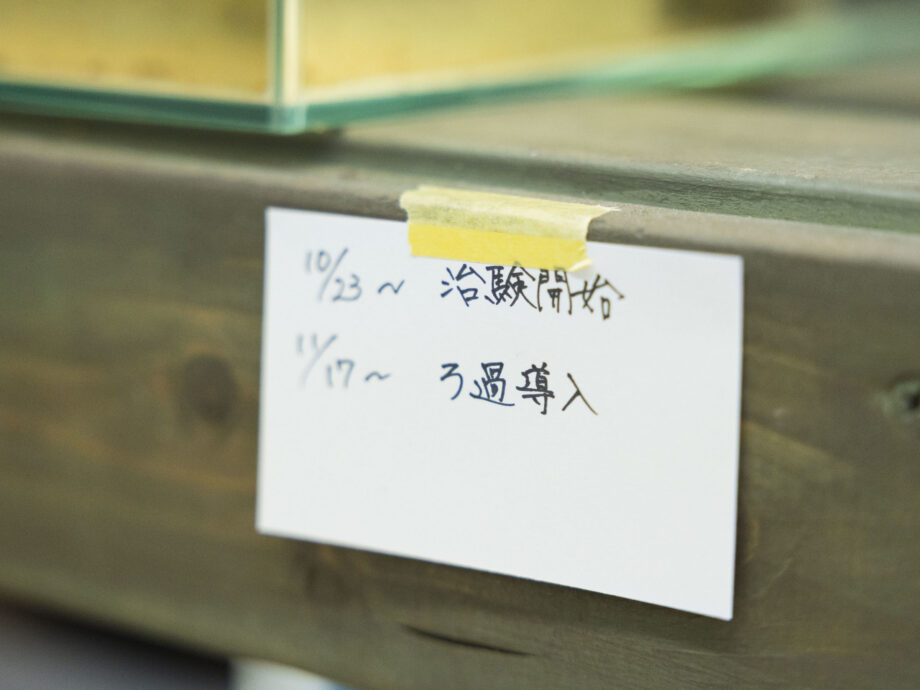 10/23~ 治験開始
11/17~ ろ過導入